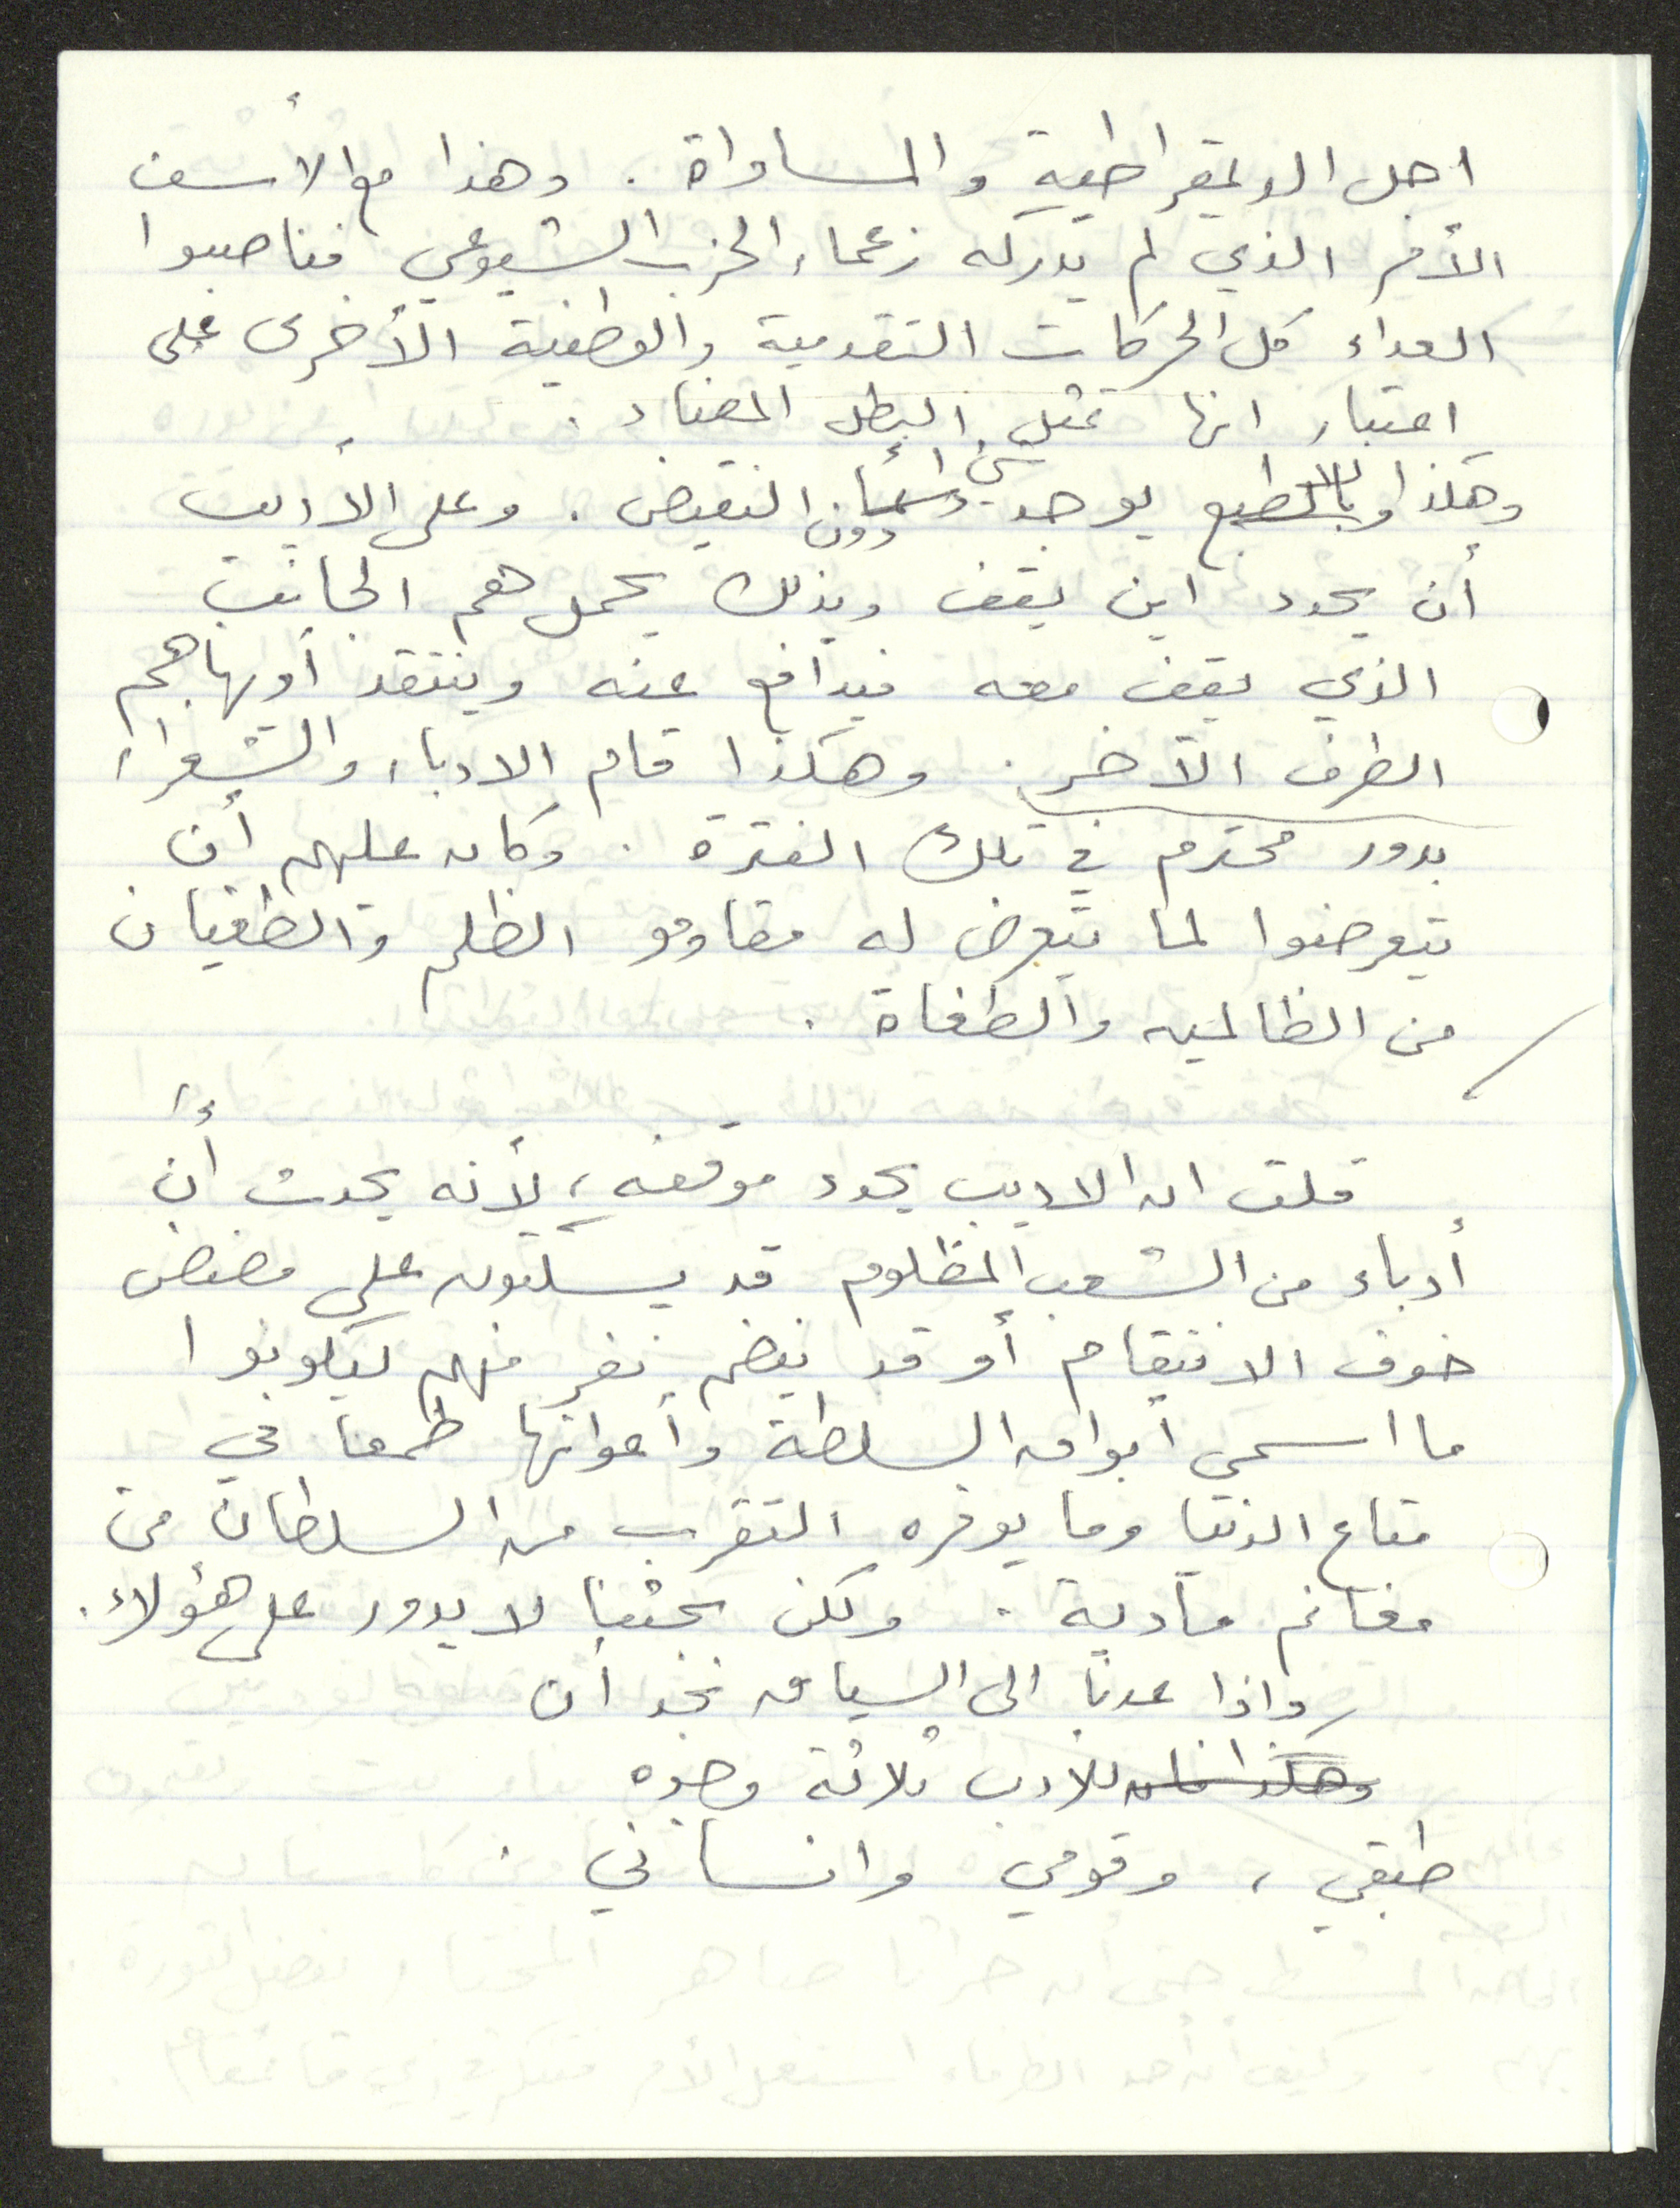 اجل الديمقراطية والمساواة . وهذا مع الأسف
الأمر الذي لم يدركه زعماء الحزب الشيوعي فناصبوا
العداء كل الحركات التقدمية والوطنية الأخرى على
اعتبار انها تمثل البطل المضاد .
وهكذا وبالطبع يوجد دائما النقيض . وعلى الأديب
أن يحدد اين يقف وبذلك يحمل هم الجانب
الذي يقف معه فيدافع عنه وينتقد أو يهاجم
الطرف الآخر . وهكذا قام الادباء والشعراء
بدور محترم في تلك الفترة . وكان عليهم أن
يتعرضوا لما يتعرض له مقاومو الظلم والطغيان
من الظالمين والطغاة .
قلت ان الاديب يحدد موقفه ، لأنه يحدث أن
أدباء من الشعب المظلوم قد يسكتون على مضض
خوف الانتقام أو قد ينضم نفر منهم ليكونوا
ما اسمي أبواق السلطة وأعوانها طمعا في
متاع الدنيا وما يوفره التقرب من السلطان من
مغانم مادية . ولكن بحثنا لا يدور على هؤلاء .
واذا عدنا الى السياق نجد أن
وهكذا فان للادب ثلاثة وجوه
طبقي ، وقومي وانساني .